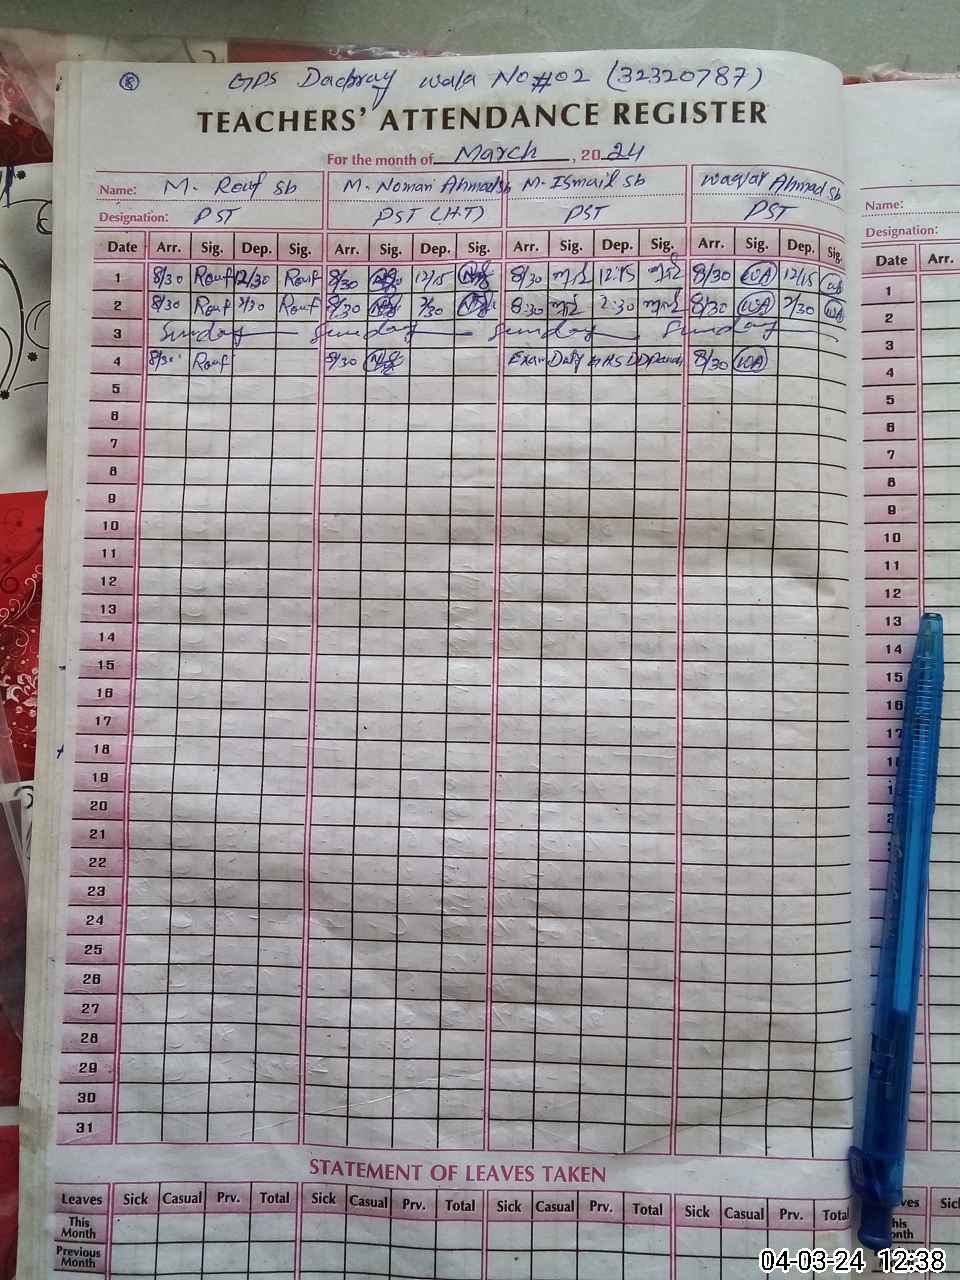 8
GPS Dabray wala No #02 (32320787)
TEACHERS' ATTENDANCE REGISTER
For the month of March, 2024
Name: M. Rouf Sb M. Noman Ahmad Sb M. Ismail Sb Waqar Ahmad Sb Name:
Designation: PST PST (H.T) PST PST Designation:
Date Arr. Sig. Dep. Sig. Arr. Sig. Dep. Sig. Arr. Sig. Dep. Sig. Arr. Sig. Dep. Sig. Date Arr.
1 8/30 Rouf 12/30 Rouf 8/30 12/15 8/30 12:15 8/30 WA 12/15 WA 1
2 8/30 Rouf 2/30 Rouf 8/30 2/30 8:30 2:30 8/30 WA 2/30 WA 2
3 Sunday Sunday Sunday Sunday 3
4 8/30 Rouf 8/30 Exam Duty GHS 8/30 WA 4
5 5
6 6
7 7
8 8
9 9
10 10
11 11
12 12
13 13
14 14
15 15
16 16
17 17
18
19
20
21
22
23
24
25
26
27
28
29
30
31
STATEMENT OF LEAVES TAKEN
Leaves Sick Casual Prv. Total Sick Casual Prv. Total Sick Casual Prv. Total Sick Casual Prv. Total
This Month
Previous Month
04-03-24 12:38